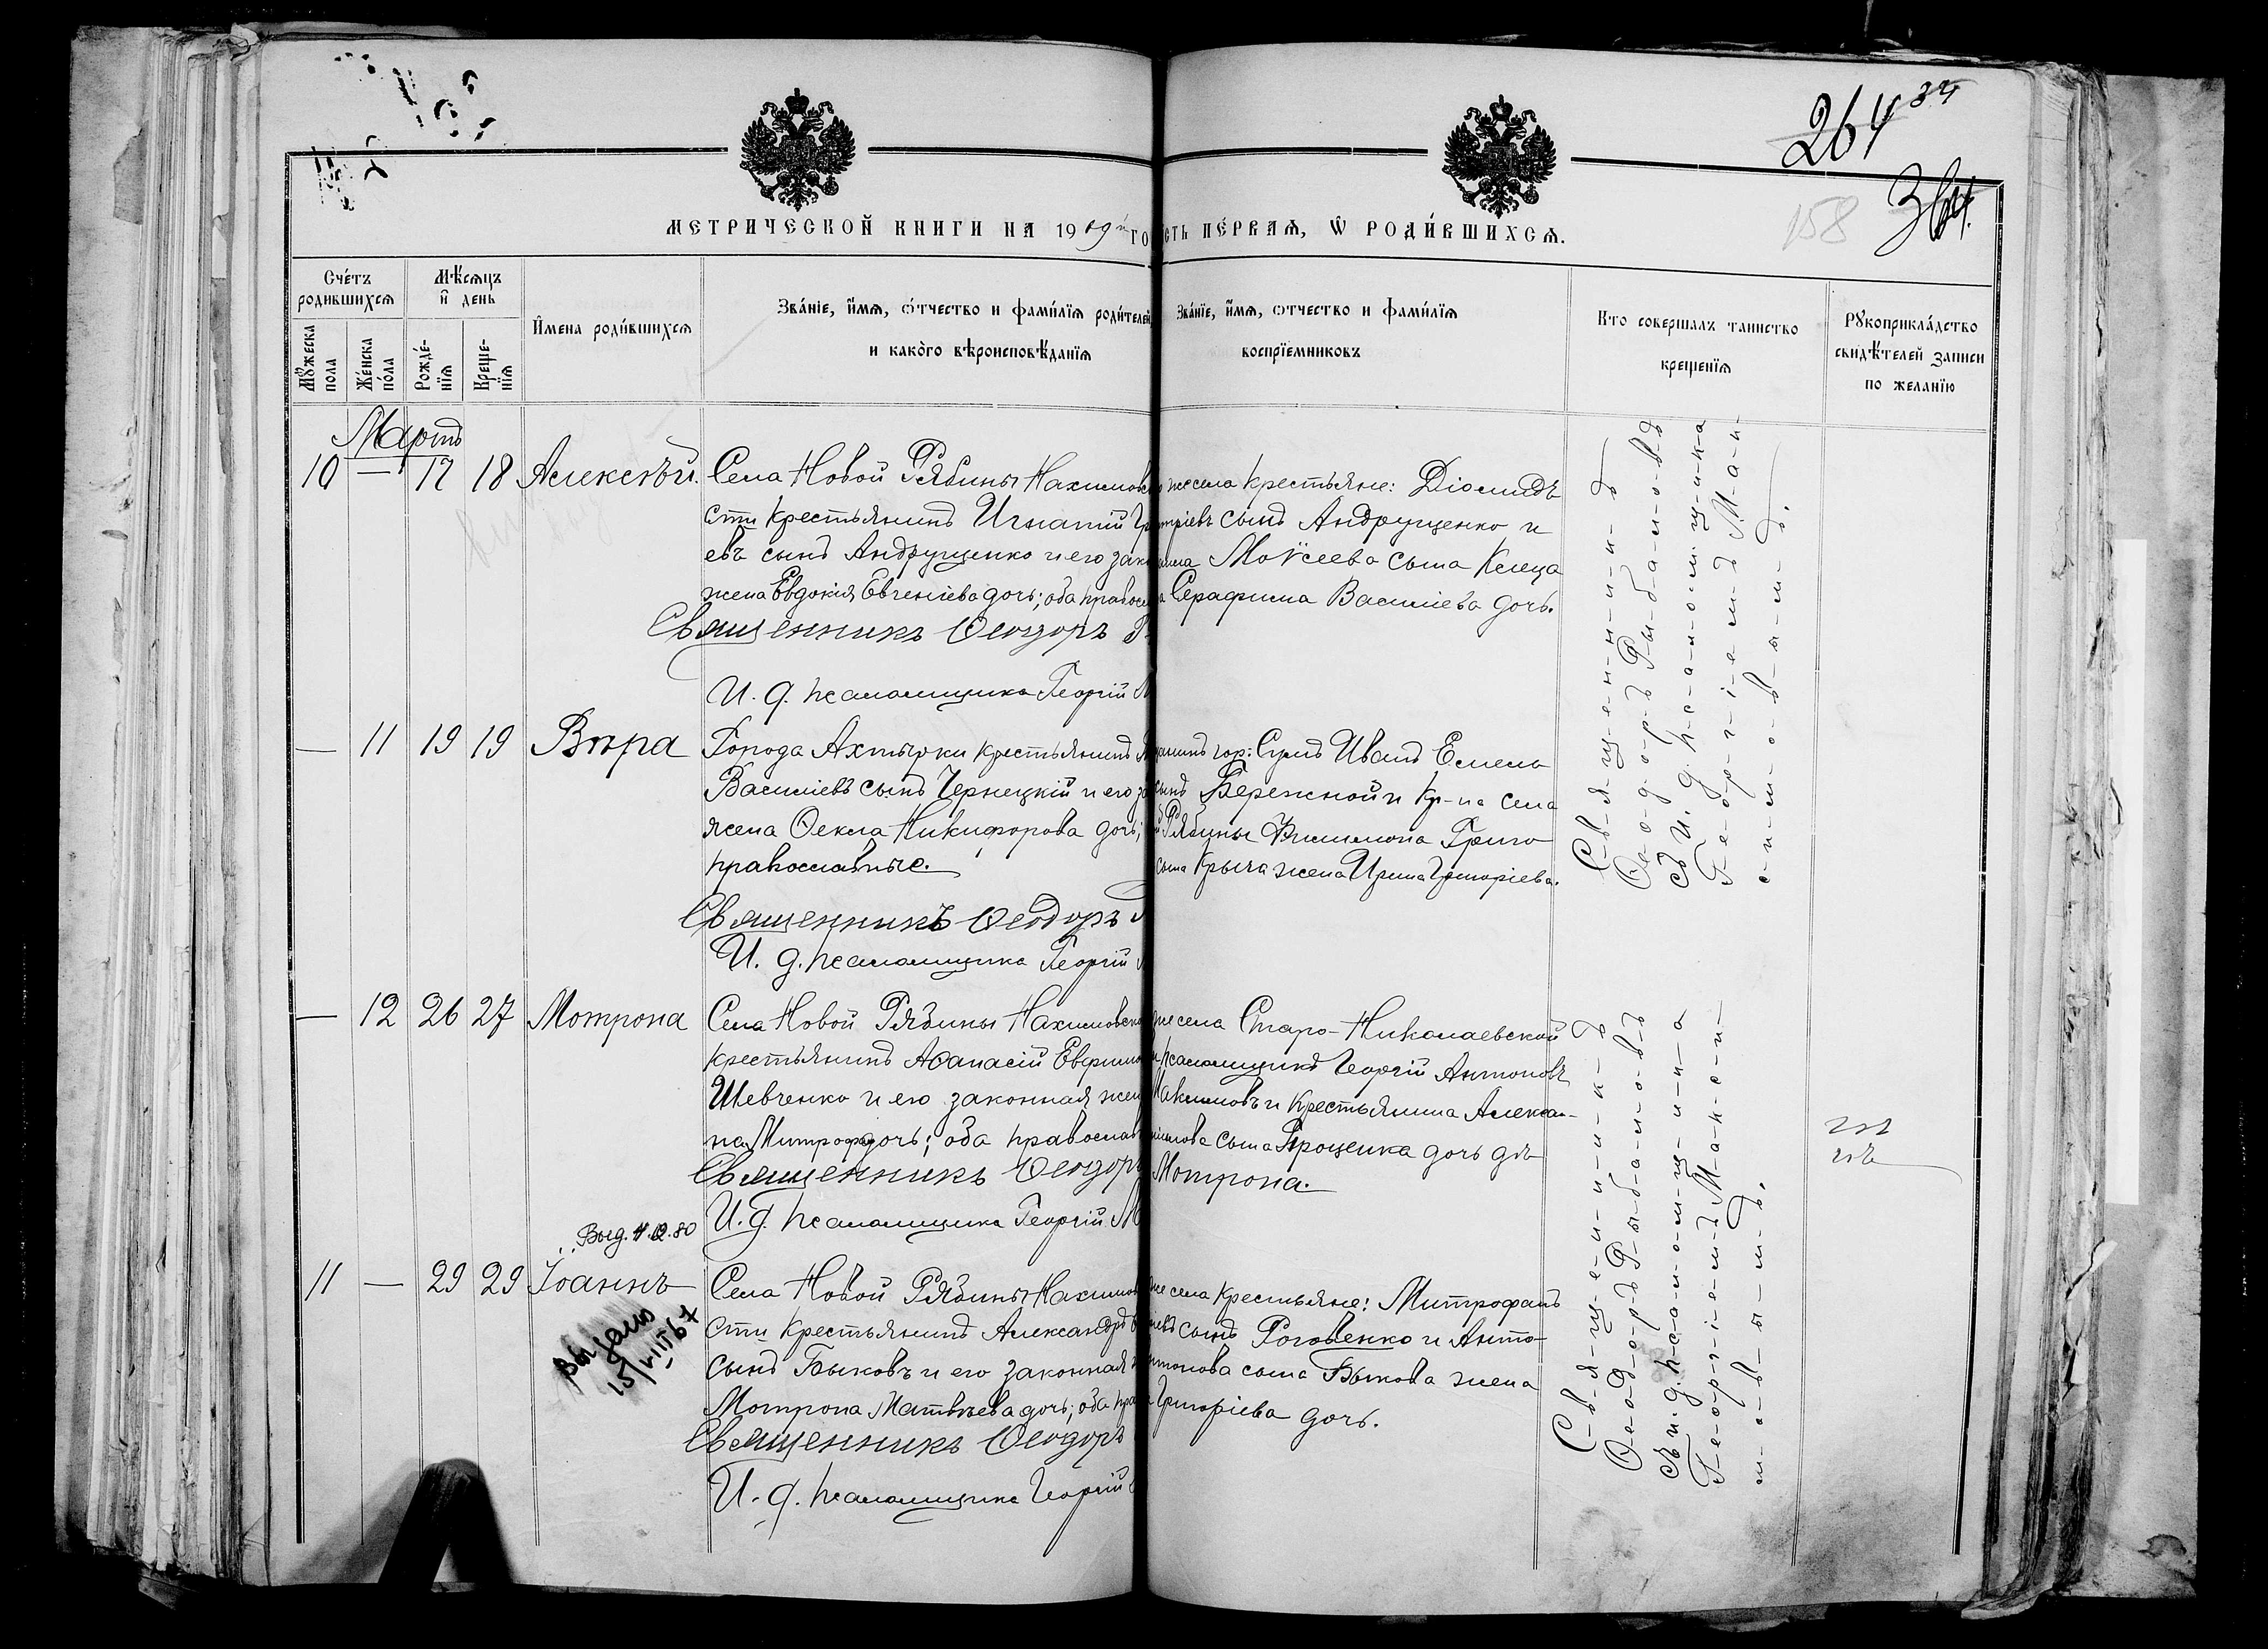 264 34
364.
158
МЕТРИЧЕСКОЙ КНИГИ НА 1909й ГО
СТЬ ПЕ́РВАѦ, Ѡ РОДИ́ВШИХСѦ.
Сче́тъ родившихсѧ
Мѣ́сѧцъ и҆ день
Мꙋ́жеска пола
Же́нска по́ла
Рожде́нїѧ
Креще́нїѧ
И҆мена роди́вшихсѧ
Зва́нїе, и҆́мѧ, ѻ҆́тчество и фами́лїѧ роди́телей
и како́го вѣроисповѣ́данїѧ
Зва́нїе, и҆́мѧ, ѻтчество и фами́лїѧ
воспрїемниковъ
Кто совершалъ таинство
крещенїѧ
Рꙋкоприкла́дство
свидѣ́телей записи
по желанїю
Мартъ
10 — 17 18 Алексѣй.
Села Новой Рябины Нахимовс
сти крестьянинъ Игнатій Гр
евъ сынъ Андрущенко и его зак
жена Евдокія Евгеніева дочь; оба правосл
Священникъ Ѳеодоръ Р
И. д. псаломщика Георгій М
же села крестьяне: Діомидъ
тріевъ сынъ Андрущенко и
Моѵсеева сына Клеца
Серафима Василіева дочь.
Священникъ
Ѳеодоръ Рыбаловъ
съ И. д. псаломщика
Георгіемъ Мак-
симовымъ.
— 11 19 19 Вѣра
Города Ахтырки крестьянинъ
Василіевъ сынъ Чернецкій и его за
жена Ѳекла Никифорова дочь;
православные.
Священникъ Ѳеодоръ
И. д. псаломщика Георгій
анинъ гор: Сумъ Иванъ Емель
сынъ Бережной и Кр-на села
Рябины Филимона Григо
сына Крыча жена Ирина Григоріева.
— 12 26 27 Мотрона
Села Новой Рябины Нахимовско
крестьянинъ Аѳанасій Евфимо
Шевченко и его законная жен
на Митроф дочь; оба православ
Священникъ Ѳеодоръ
И. д. псаломщика Георгій М
же села Старо-Николаевской
псаломщикъ Георгій Антоновъ
Максимовъ и крестьянина Алексан-
сына Проценка дочь дѣ
Мотрона.
Священникъ
Ѳеодоръ Рыбаловъ
съ и. д. псаломщика
Георгіемъ Макси-
мовымъ.
Выд.
11 — 29 29 Іоаннъ
Выдано
15/VIII 67
Села Новой Рябины Нахимов
сти крестьянинъ Александръ
сынъ Быковъ и его законная
Мотрона Матвѣева дочь; оба пра
Священникъ Ѳеодоръ
И. д. псаломщика Георгій
же села крестьяне: Митрофанъ
сынъ Роговенко и Анто-
антонова сына Быкова жена
Григоріева дочь.